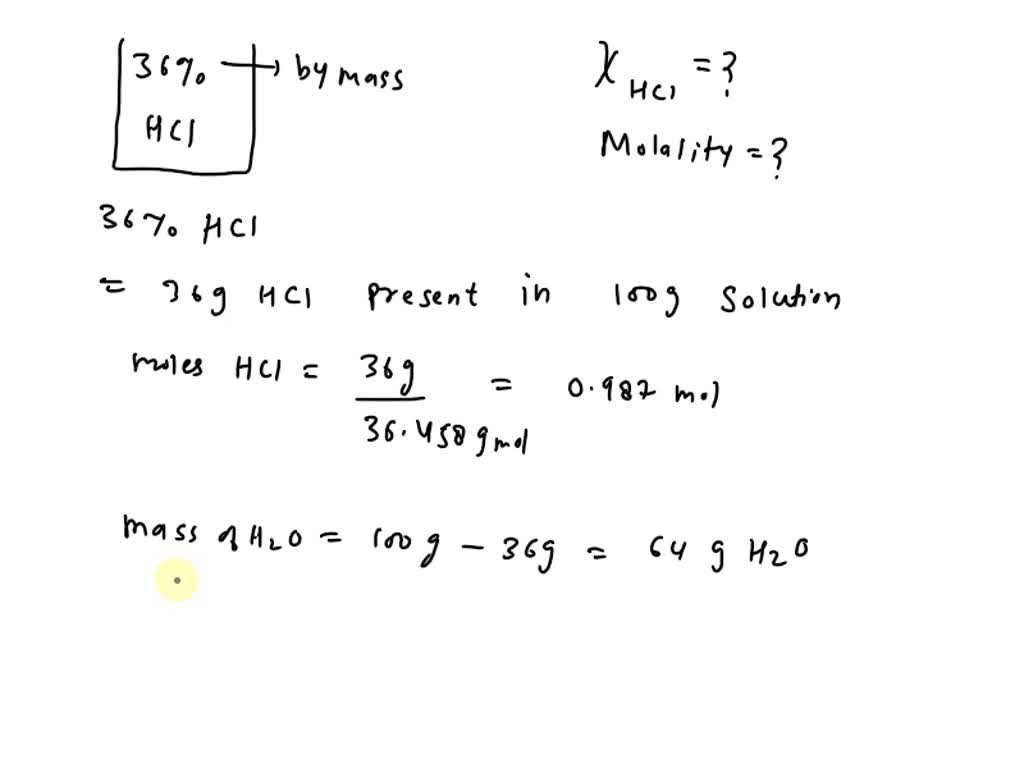 36% → by mass
HCl
χ HCl = ?
Molality = ?
36% HCl
= 36g HCl present in 100g solution
moles HCl = 36g / 36.458 g mol = 0.987 mol
mass of H2O = 100 g - 36g = 64 g H2O